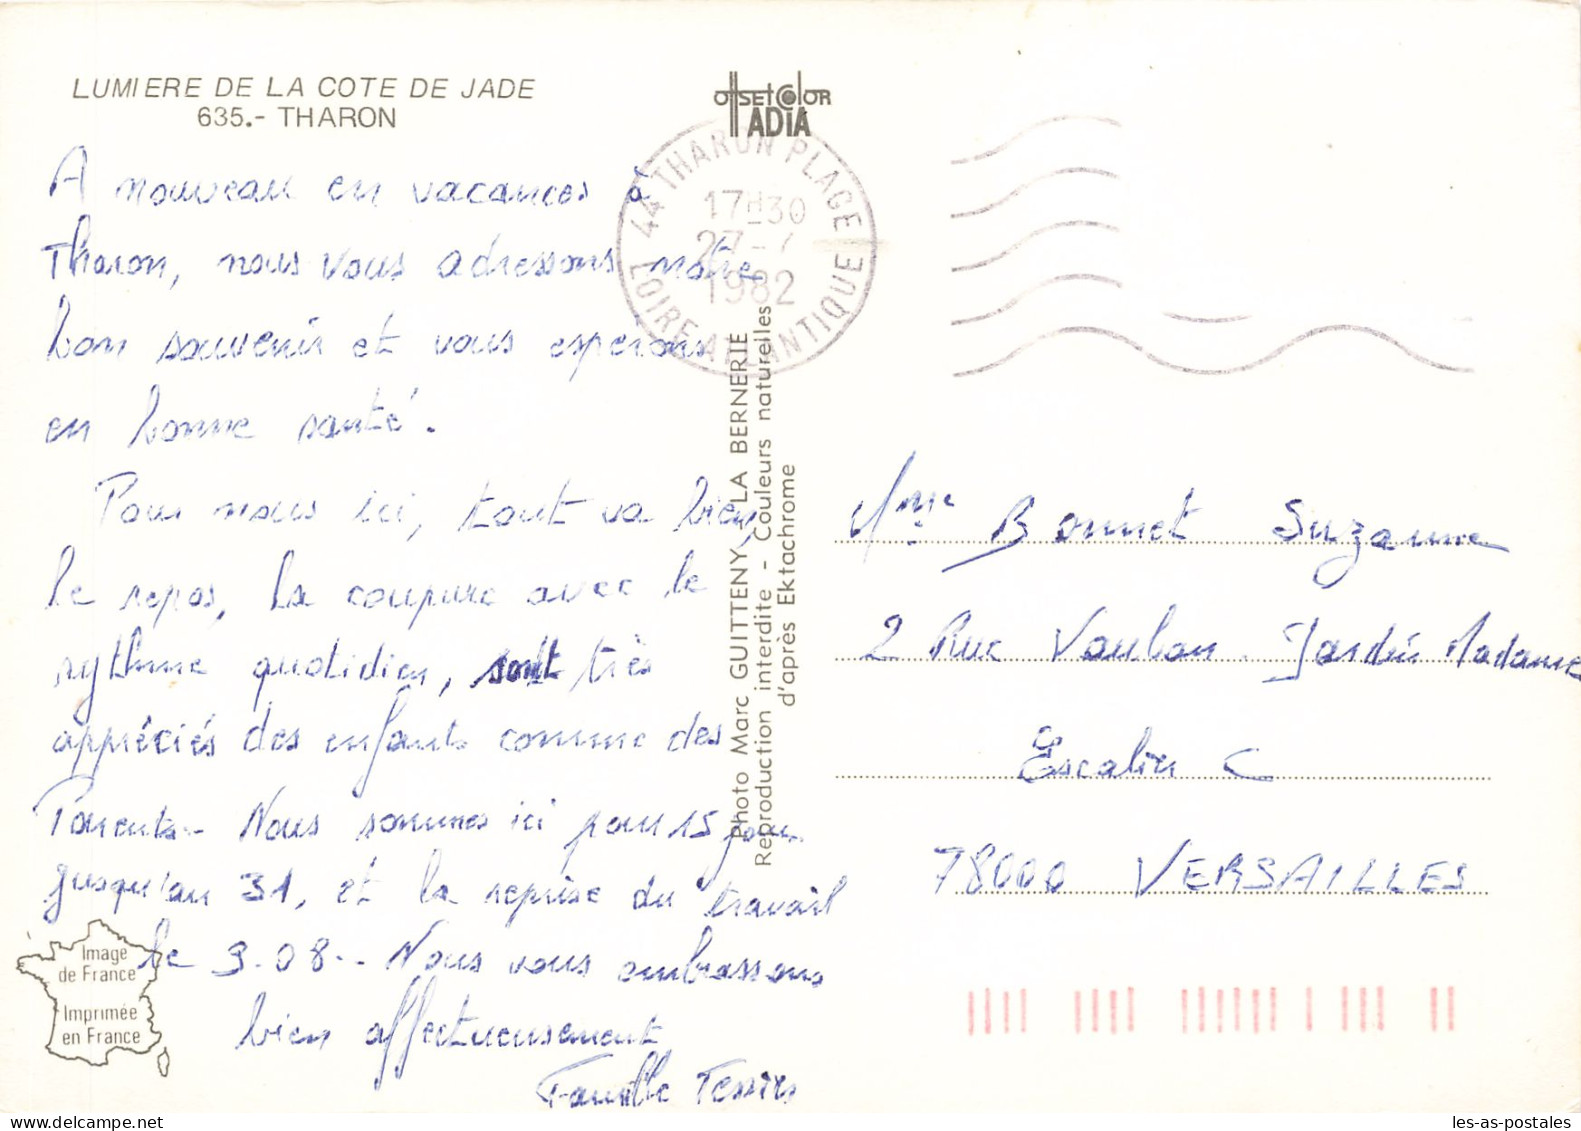 LUMIERE DE LA COTE DE JADE
635.- THARON
A nouveau en vacances à
Tharon, nous vous adressons notre
bon souvenir et vous esperons
en bonne santé.
Pour nous ici, tout va bien,
le repos, la coupure avec le
rythme quotidien, sont très
appréciés des enfants comme des
Parents. Nous sommes ici pour 15 jours
jusqu'au 31, et la reprise du travail
le 3.08.. Nous vous embrassons
bien affectueusement
Famille
Image
de France
Imprimée
en France
OffSETCOlOR
ADIA
44 THARON PLAGE
17H30
27-7
1982
LOIRE ATLANTIQUE
Photo Marc GUITTENY - LA BERNERIE
Reproduction interdite - Couleurs naturelles
d'après Ektachrome
Mme Bonnet Suzanne
2 Rue Vauban. Jardin Madame
Escalier C
78000 VERSAILLES
les-as-postales